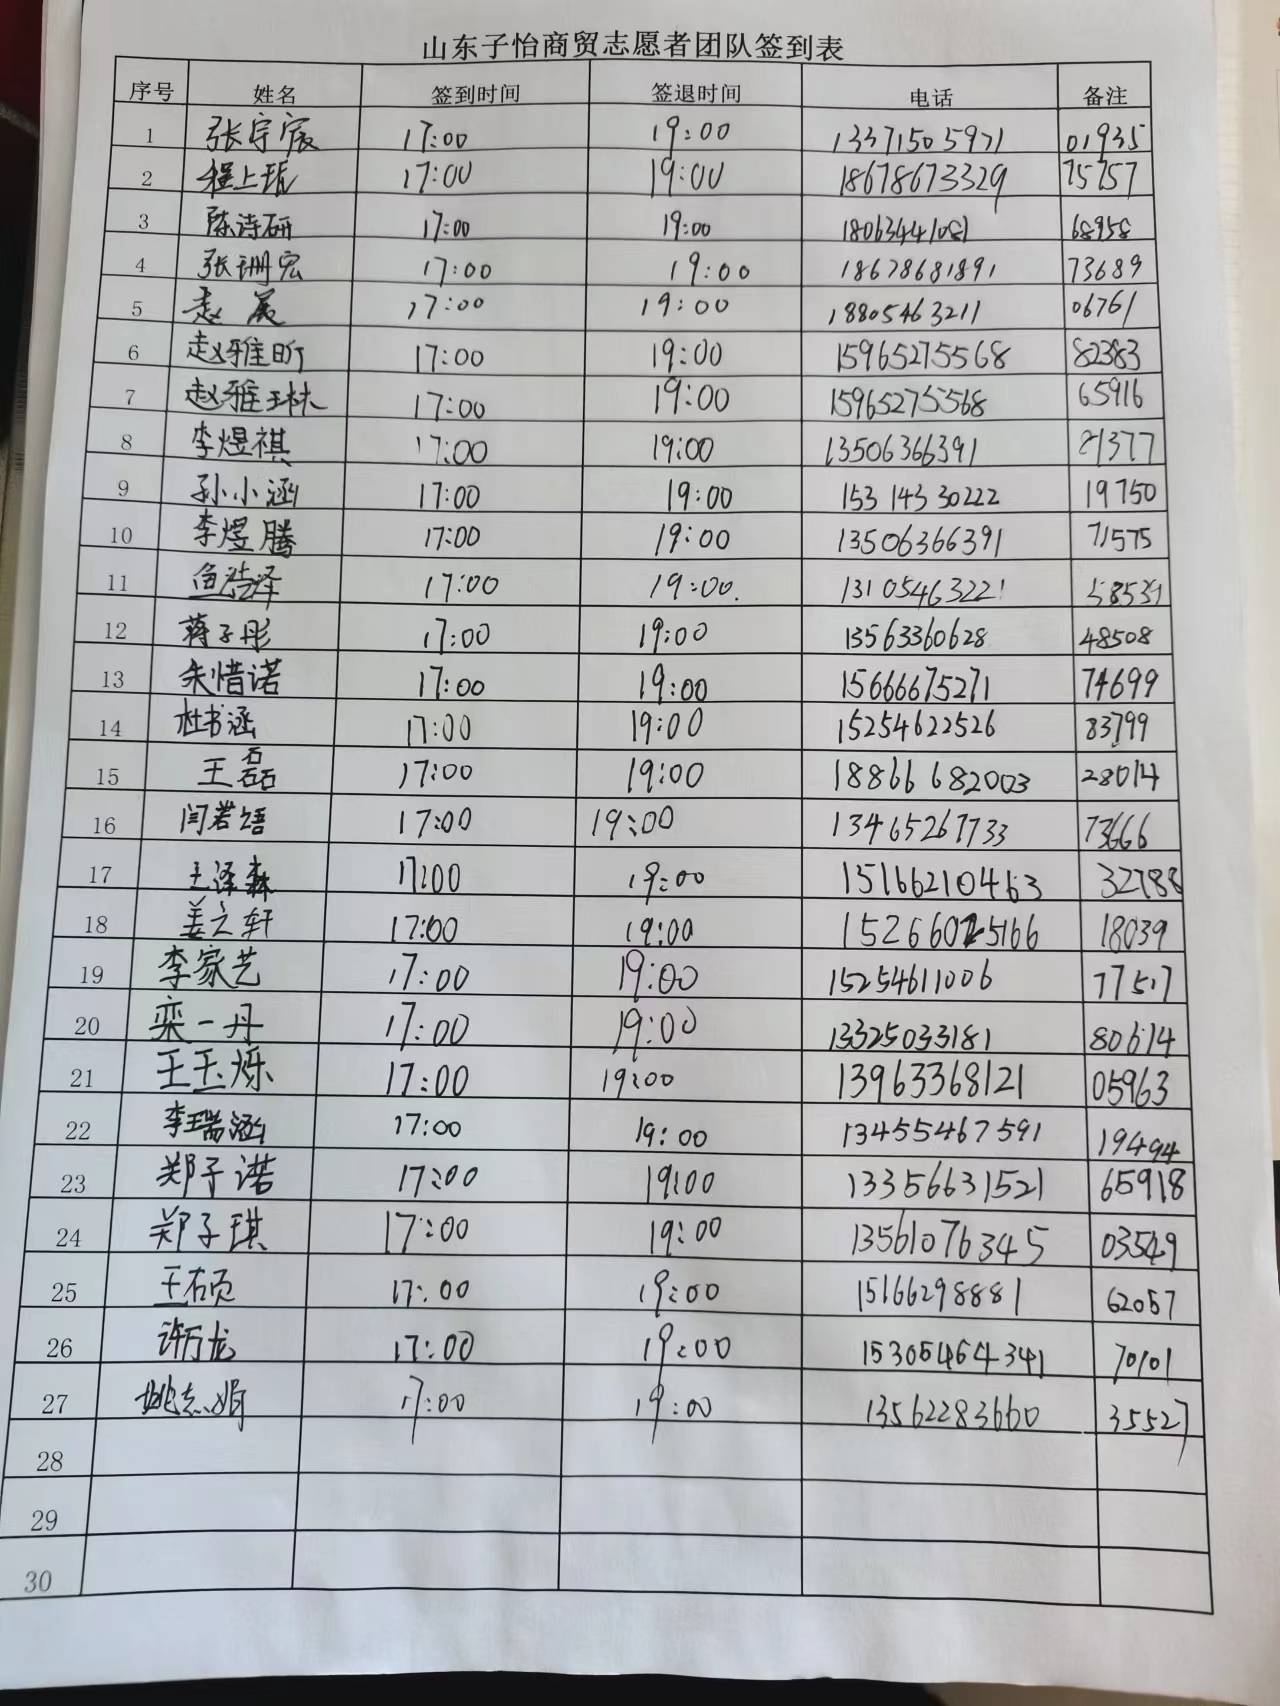 山东子怡商贸志愿者团队签到表
序号 姓名 签到时间 签退时间 电话 备注
1 张宇宸 17:00 19:00 13371505971 01935
2 程上 17:00 19:00 18678673329 75757
3 陈诗研 17:00 19:00 18063441081 68958
4 张珊宏 17:00 19:00 18678681891 73689
5 赵 17:00 19:00 18805463211 06761
6 赵雅昕 17:00 19:00 15965275568 82383
7 赵雅琳 17:00 19:00 15965275568 65916
8 李煜祺 17:00 19:00 13506366391 21377
9 孙小涵 17:00 19:00 15314330222 19750
10 李煜腾 17:00 19:00 13506366391 71575
11 鱼浩泽 17:00 19:00. 13105463221
12 蒋子彤 17:00 19:00 13563360628 48508
13 朱惜诺 17:00 19:00 15666675271 74699
14 杜书涵 17:00 19:00 15254622526 83799
15 王磊 17:00 19:00 18866682003 28014
16 闫若语 17:00 19:00 13465267733 73666
17 王泽森 17:00 19:00 15166210463 32788
18 姜之轩 17:00 19:00 18039
19 李家艺 17:00 19:00 15254611006 77517
20 栾一丹 17:00 19:00 13325033181 80614
21 王玉烁 17:00 19:00 13963368121 05963
22 李瑞涵 17:00 19:00 13455467591 19494
23 郑子诺 17:00 19:00 13356631521 65918
24 郑子琪 17:00 19:00 13561076345 03549
25 王右页 17:00 19:00 15166298881 62057
26 许万龙 17:00 19:00 15305464341 70101
27 姚志娟 17:00 19:00 13562283660 35527
28
29
30